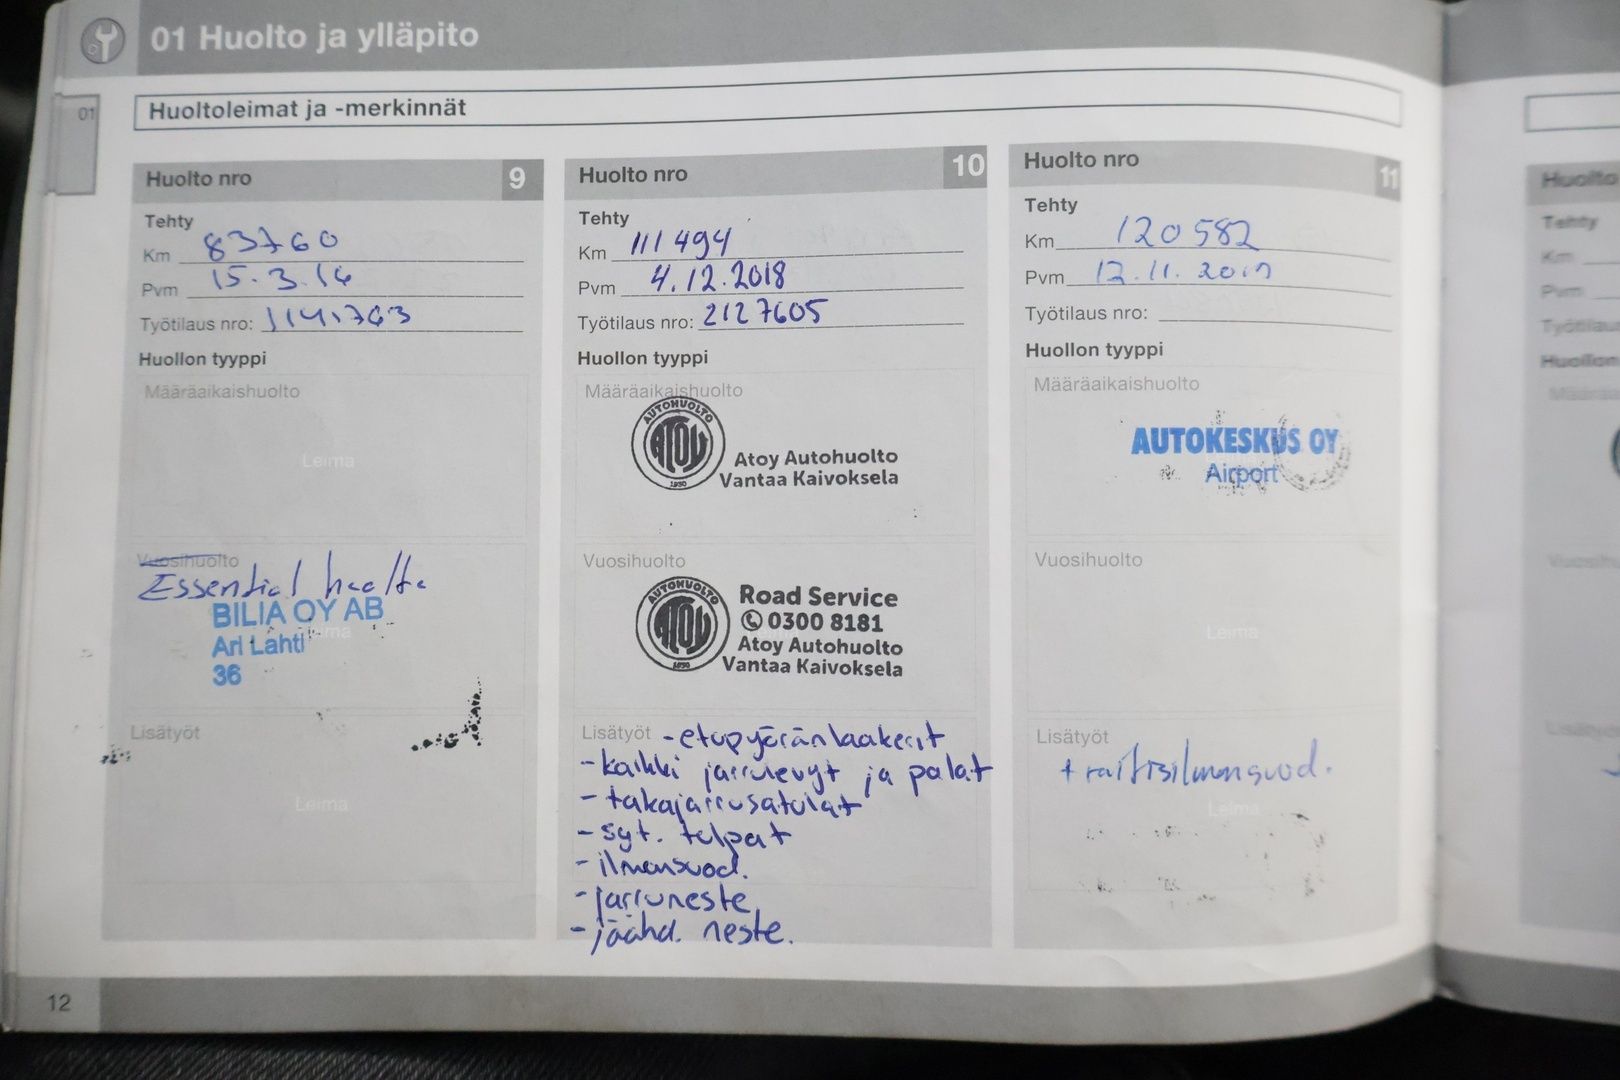 01 Huolto ja ylläpito
01
Huoltoleimat ja -merkinnät
Huolto nro 9
Tehty
Km 83760
Pvm 15.3.16
Työtilaus nro:
Huollon tyyppi
Määräaikaishuolto
Leima
Vuosihuolto
Essential huolto
BILIA OY AB
Ari Lahti
36
Leima
Lisätyöt
Leima
Huolto nro 10
Tehty
Km 111 494
Pvm 4.12.2018
Työtilaus nro: 2127605
Huollon tyyppi
Määräaikaishuolto
AUTOHUOLTO
ATOY
1930
Atoy Autohuolto
Vantaa Kaivoksela
Vuosihuolto
AUTOHUOLTO
ATOY
1930
Road Service
0300 8181
Atoy Autohuolto
Vantaa Kaivoksela
Lisätyöt - etupyöränlaakerit
- kaikki jarrulevyt ja palat
- takajarrusatulat
- syt. tulpat
- ilmansuod.
- jarruneste
- jäähd. neste.
Huolto nro 11
Tehty
Km 120 582
Pvm 12.11.
Työtilaus nro:
Huollon tyyppi
Määräaikaishuolto
AUTOKESKUS OY
Airport
Vuosihuolto
Leima
Lisätyöt
+ raitisilmansuod.
Leima
12
Huolto
Tehty
Km
Pvm
Työtilaus
Huollon